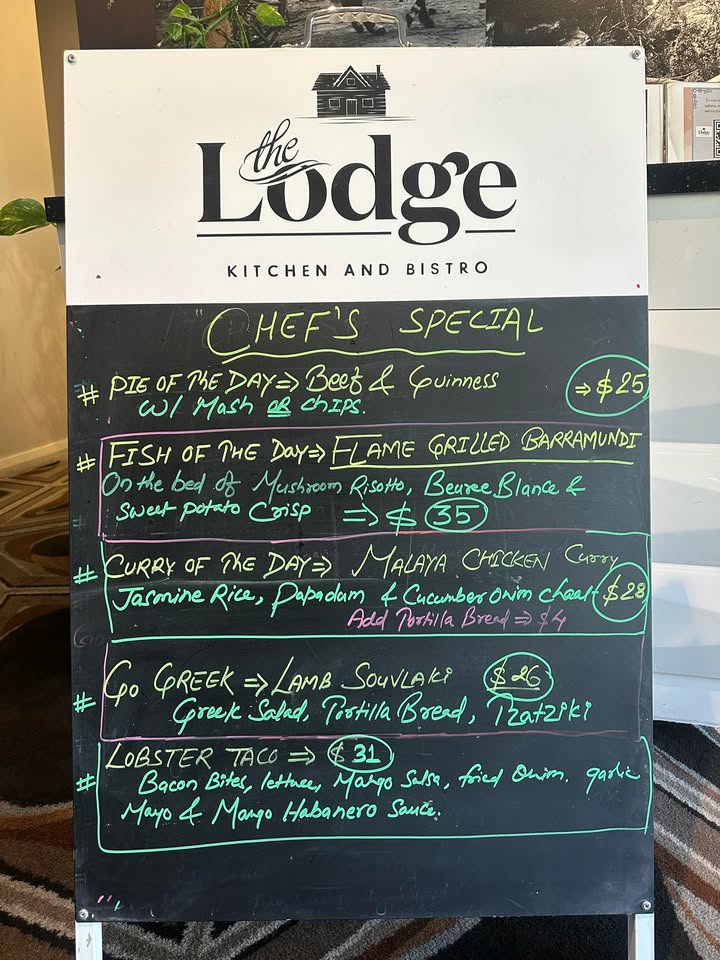 the
Lodge
KITCHEN AND BISTRO
"CHEF'S SPECIAL
# PIE OF THE DAY ⇒ Beef & Guinness ⇒ $25
W/ Mash OR chips.
# FISH OF THE DAY ⇒ FLAME GRILLED BARRAMUNDI
On the bed of Mushroom Risotto, Beuree Blance &
Sweet potato Crisp ⇒ $ 35
# CURRY OF THE DAY ⇒ MALAYA CHICKEN Curry
Jasmine Rice, Papadam & Cucumber Onion chaat $28
Add Tortilla Bread ⇒ $4
# GO GREEK ⇒ LAMB SOUVLAKI $26
Greek Salad, Tortilla Bread, Tzatziki
# LOBSTER TACO ⇒ $31
Bacon Bites, lettuce, Mango Salsa, fried Onion. garlic
Mayo & Mango Habanero Sauce.